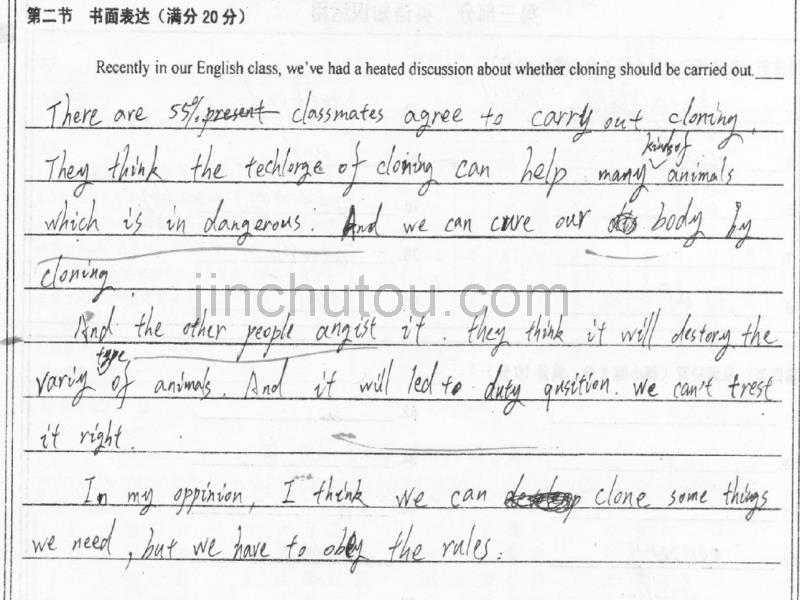 第二节 书面表达（满分20分）
Recently in our English class, we've had a heated discussion about whether cloning should be carried out.
There are 55% present classmates agree to carry out cloning.
They think the techlorge of cloning can help many kinds of animals
which is in dangerous. And we can cure our body by
cloning
jinchutou.com
And the other people angist it. they think it will destory the
variy type of animals. And it will led to duty qusition. we can't trest
it right.
In my oppinion, I think we can clone some things
we need, but we have to obey the rules.